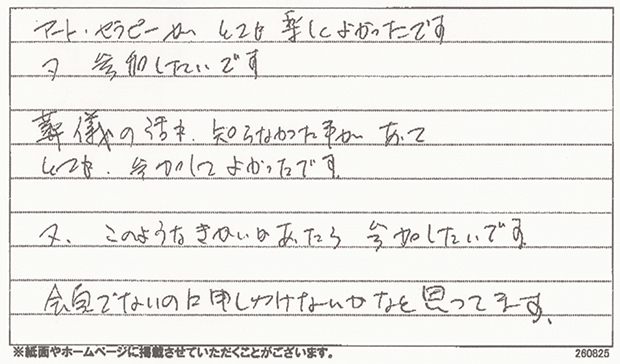 アート・セラピーが とても 楽しくよかったです
又 参加したいです
葬儀の話も 知らなかった事が あって
とても、参加して よかったです。
又、このようなきかいがあったら 参加したいです。
会員でないので申しわけないかなと思ってます。
※紙面やホームページに掲載させていただくことがございます。
260825